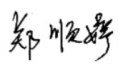 郑顺婷